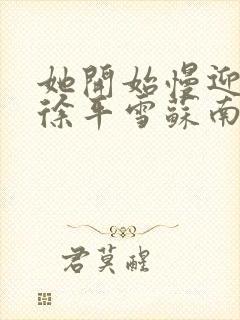 她開始慢迎
徐平雪蘇南
君莫醒